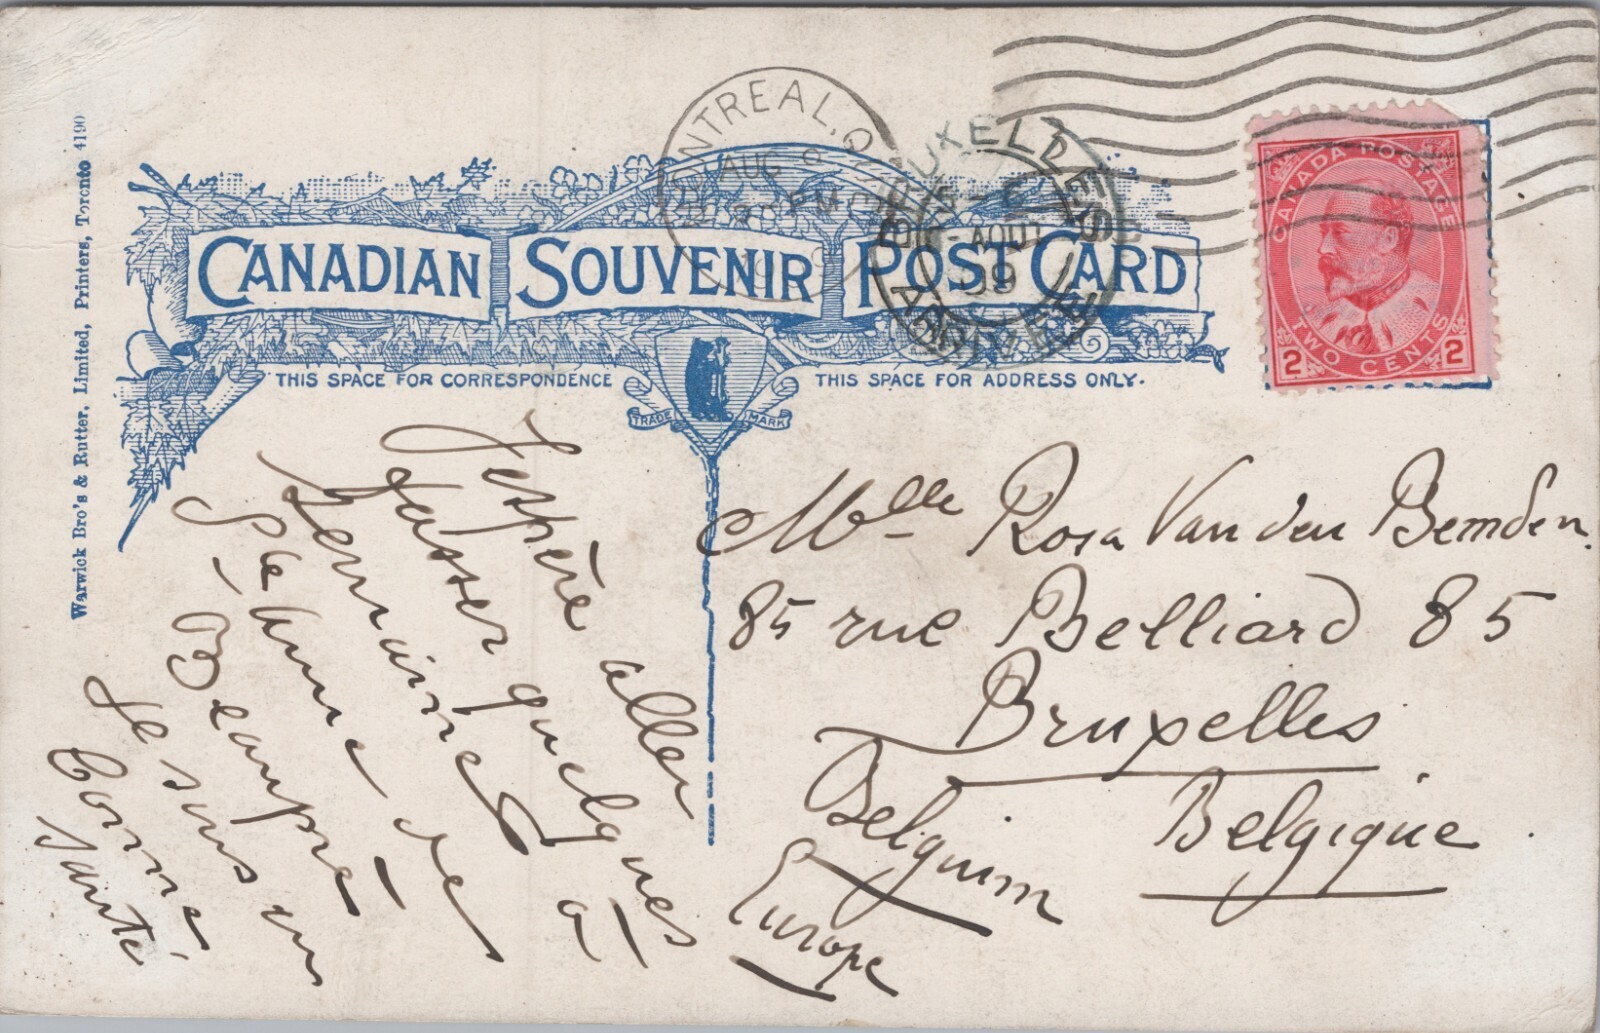 Warwick Bro's & Rutter, Limited, Printers, Toronto 4190
MONTREAL, QUE
AUG
BRUXELLES
5-6
AOUT
09
ARRIVEE
CANADA POSTAGE
2 TWO CENTS 2
CANADIAN SOUVENIR POST CARD
THIS SPACE FOR CORRESPONDENCE
TRADE MARK
THIS SPACE FOR ADDRESS ONLY.
J'espère aller
passer quelques
semaines à
Ste Anne de
Beaupré
Je suis en
bonne
santé
Mlle Rosa Van den Bemden.
85 rue Belliard 85
Bruxelles
Belgique
Belgium
Europe